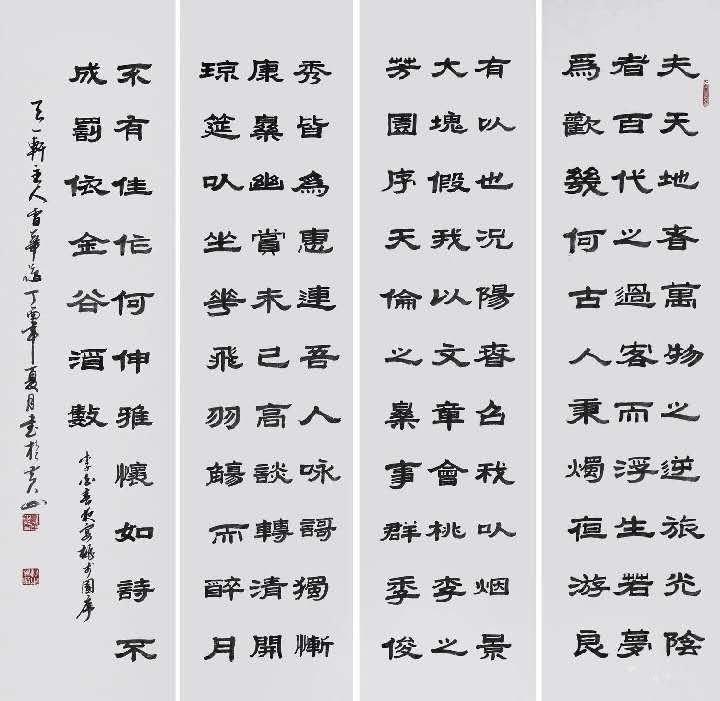 夫天地者萬物之逆旅光陰
者百代之過客而浮生若夢
爲歡幾何古人秉燭夜游良
有以也況陽春召我以烟景
大塊假我以文章會桃李之
芳園序天倫之樂事群季俊
秀皆爲惠連吾人咏謌獨慚
康樂幽賞未已高談轉清開
琼筵以坐花飛羽觴而醉月
不有佳作何伸雅懷如詩不
成罰依金谷酒數
李白春夜宴桃李園序
天一軒主人 丁酉年夏月書於黄山